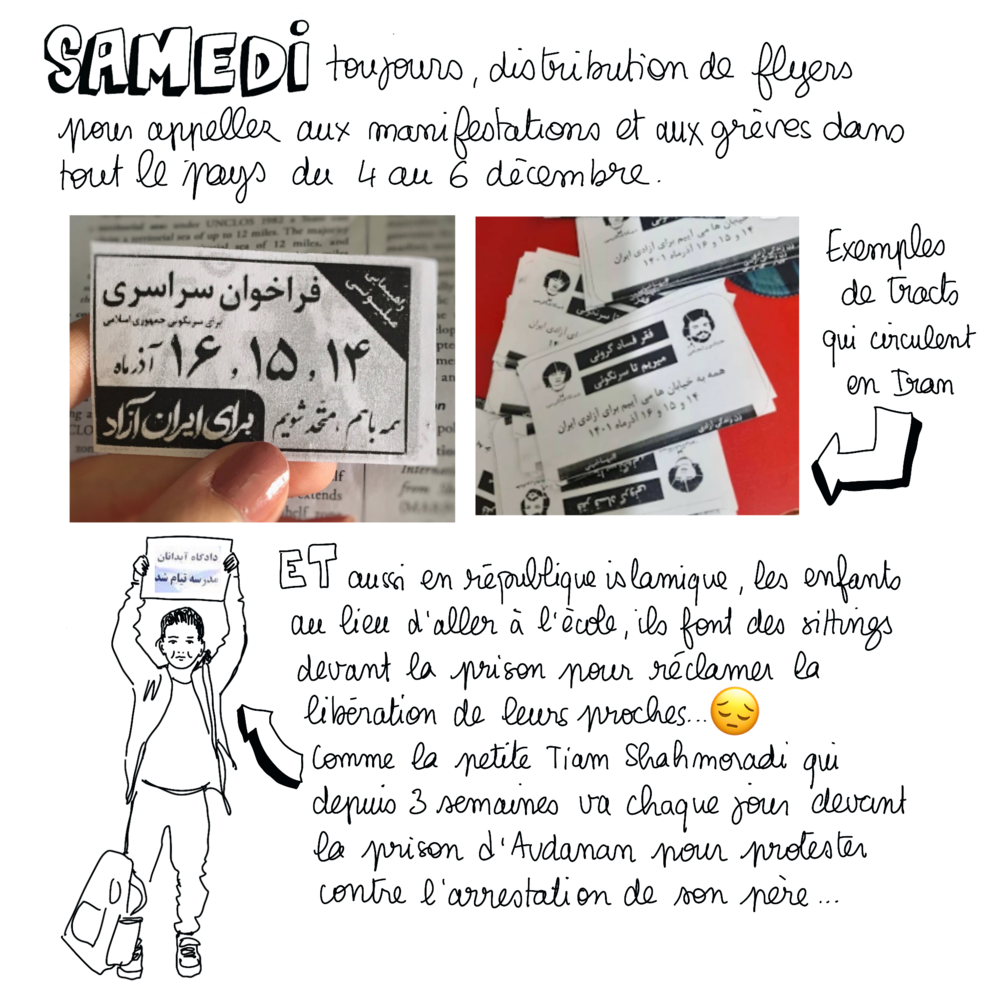 SAMEDI toujours, distribution de flyers
pour appeller aux manifestations et aux grèves dans
tout le pays du 4 au 6 décembre.
territorial sea of up to 12 miles. The majority
sea of 12 miles, and
راهپیمایی
میلیونی
فراخوان سراسری
برای سرنگونی جمهوری اسلامی
۱۴، ۱۵، ۱۶ آذرماه
همه باهم، متحد شویم
برای ایران آزاد
خیابان ها می آییم برای آزادی ایران
۱۴ و ۱۵ و ۱۶ آذرماه ۱۴۰۱
فقر فساد گرونی
میریم تا سرنگونی
همه به خیابان ها می آییم برای آزادی ایران
۱۴ و ۱۵ و ۱۶ آذرماه ۱۴۰۱
زن زندگی آزادی
Exemples
de tracts
qui circulent
en Iran
دادگاه آبدانان
مدرسه تیام شد
ET aussi en république islamique, les enfants
au lieu d'aller à l'école, ils font des sittings
devant la prison pour réclamer la
libération de leurs proches...😔
Comme la petite Tiam Shahmoradi qui
depuis 3 semaines va chaque jour devant
la prison d'Avdanan pour protester
contre l'arrestation de son père...